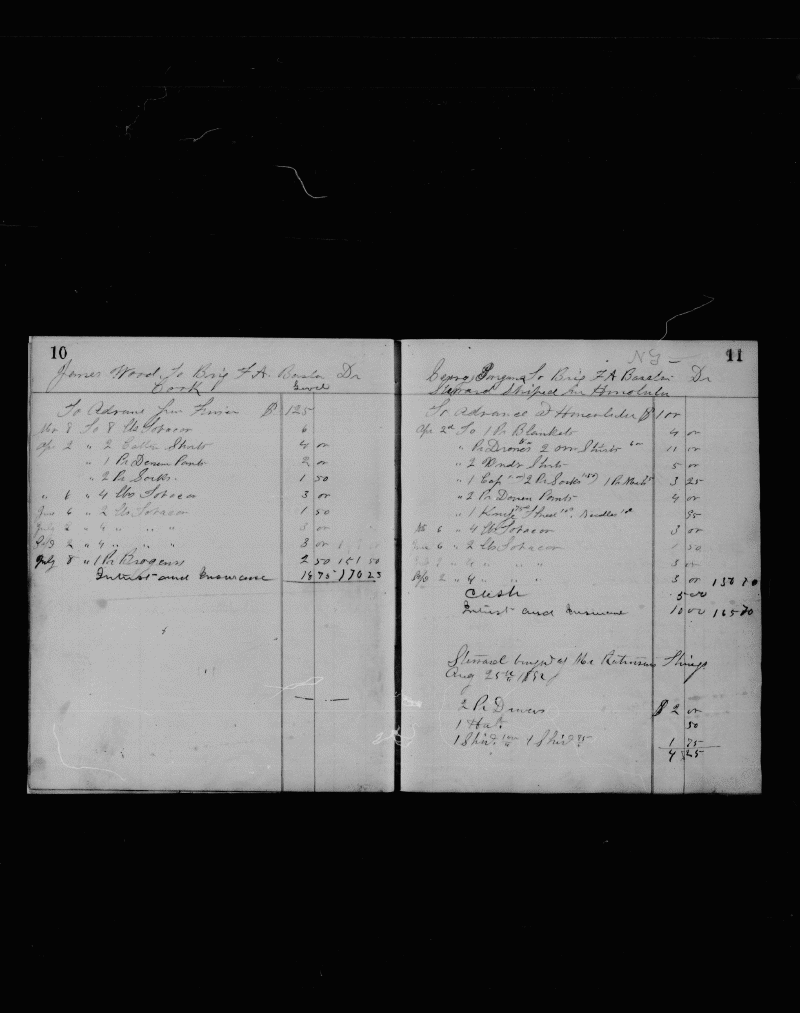 10
James Wood To Brig F A. Barstow Dr
Cook
To Advance from $ 125
Mar 8 To 8 lbs Tobacco 6
Apr 2 " 2 Shirts 4 00
" 1 Pr Denem Pants 2 00
" 2 Pr Socks 1 50
" 6 " 4 lbs Tobacco 3 00
June 6 " 2 lbs Tobacco 1 50
2 " 4 " " " 3 00
2 " 4 " " " 3 00
July 8 " 1 Pr Brogans 2 50 151 50
Interest and Insurance 18 75 170 25
NG – 11
George To Brig F A Barstow Dr
Steward Shiped in Honolulu
To Advance $ 100
Apr 2d To 1 Pr Blankets 4 00
" Pr 2 Shirts 11 00
" 2 Undr Shirts 5 00
" 1 Cap 2 Pr Socks 1 Pr 3 25
" 2 Pr Denem Pants 4 00
" 1 Knife Thread Needles 95
6 " 4 lb Tobacco 3 00
June 6 " 2 lbs Tobacco 1 50
" 4 " " " 3 00
2 " 4 " " " 3 00 150 70
Cash 5 00
Interest and Insurance 10 00 165 70
Steward bought of Things
Aug 25th
2 Pr Drawers $ 2 00
1 Hat 50
1 Shirt 1 Shirt 75 1 75
4 25